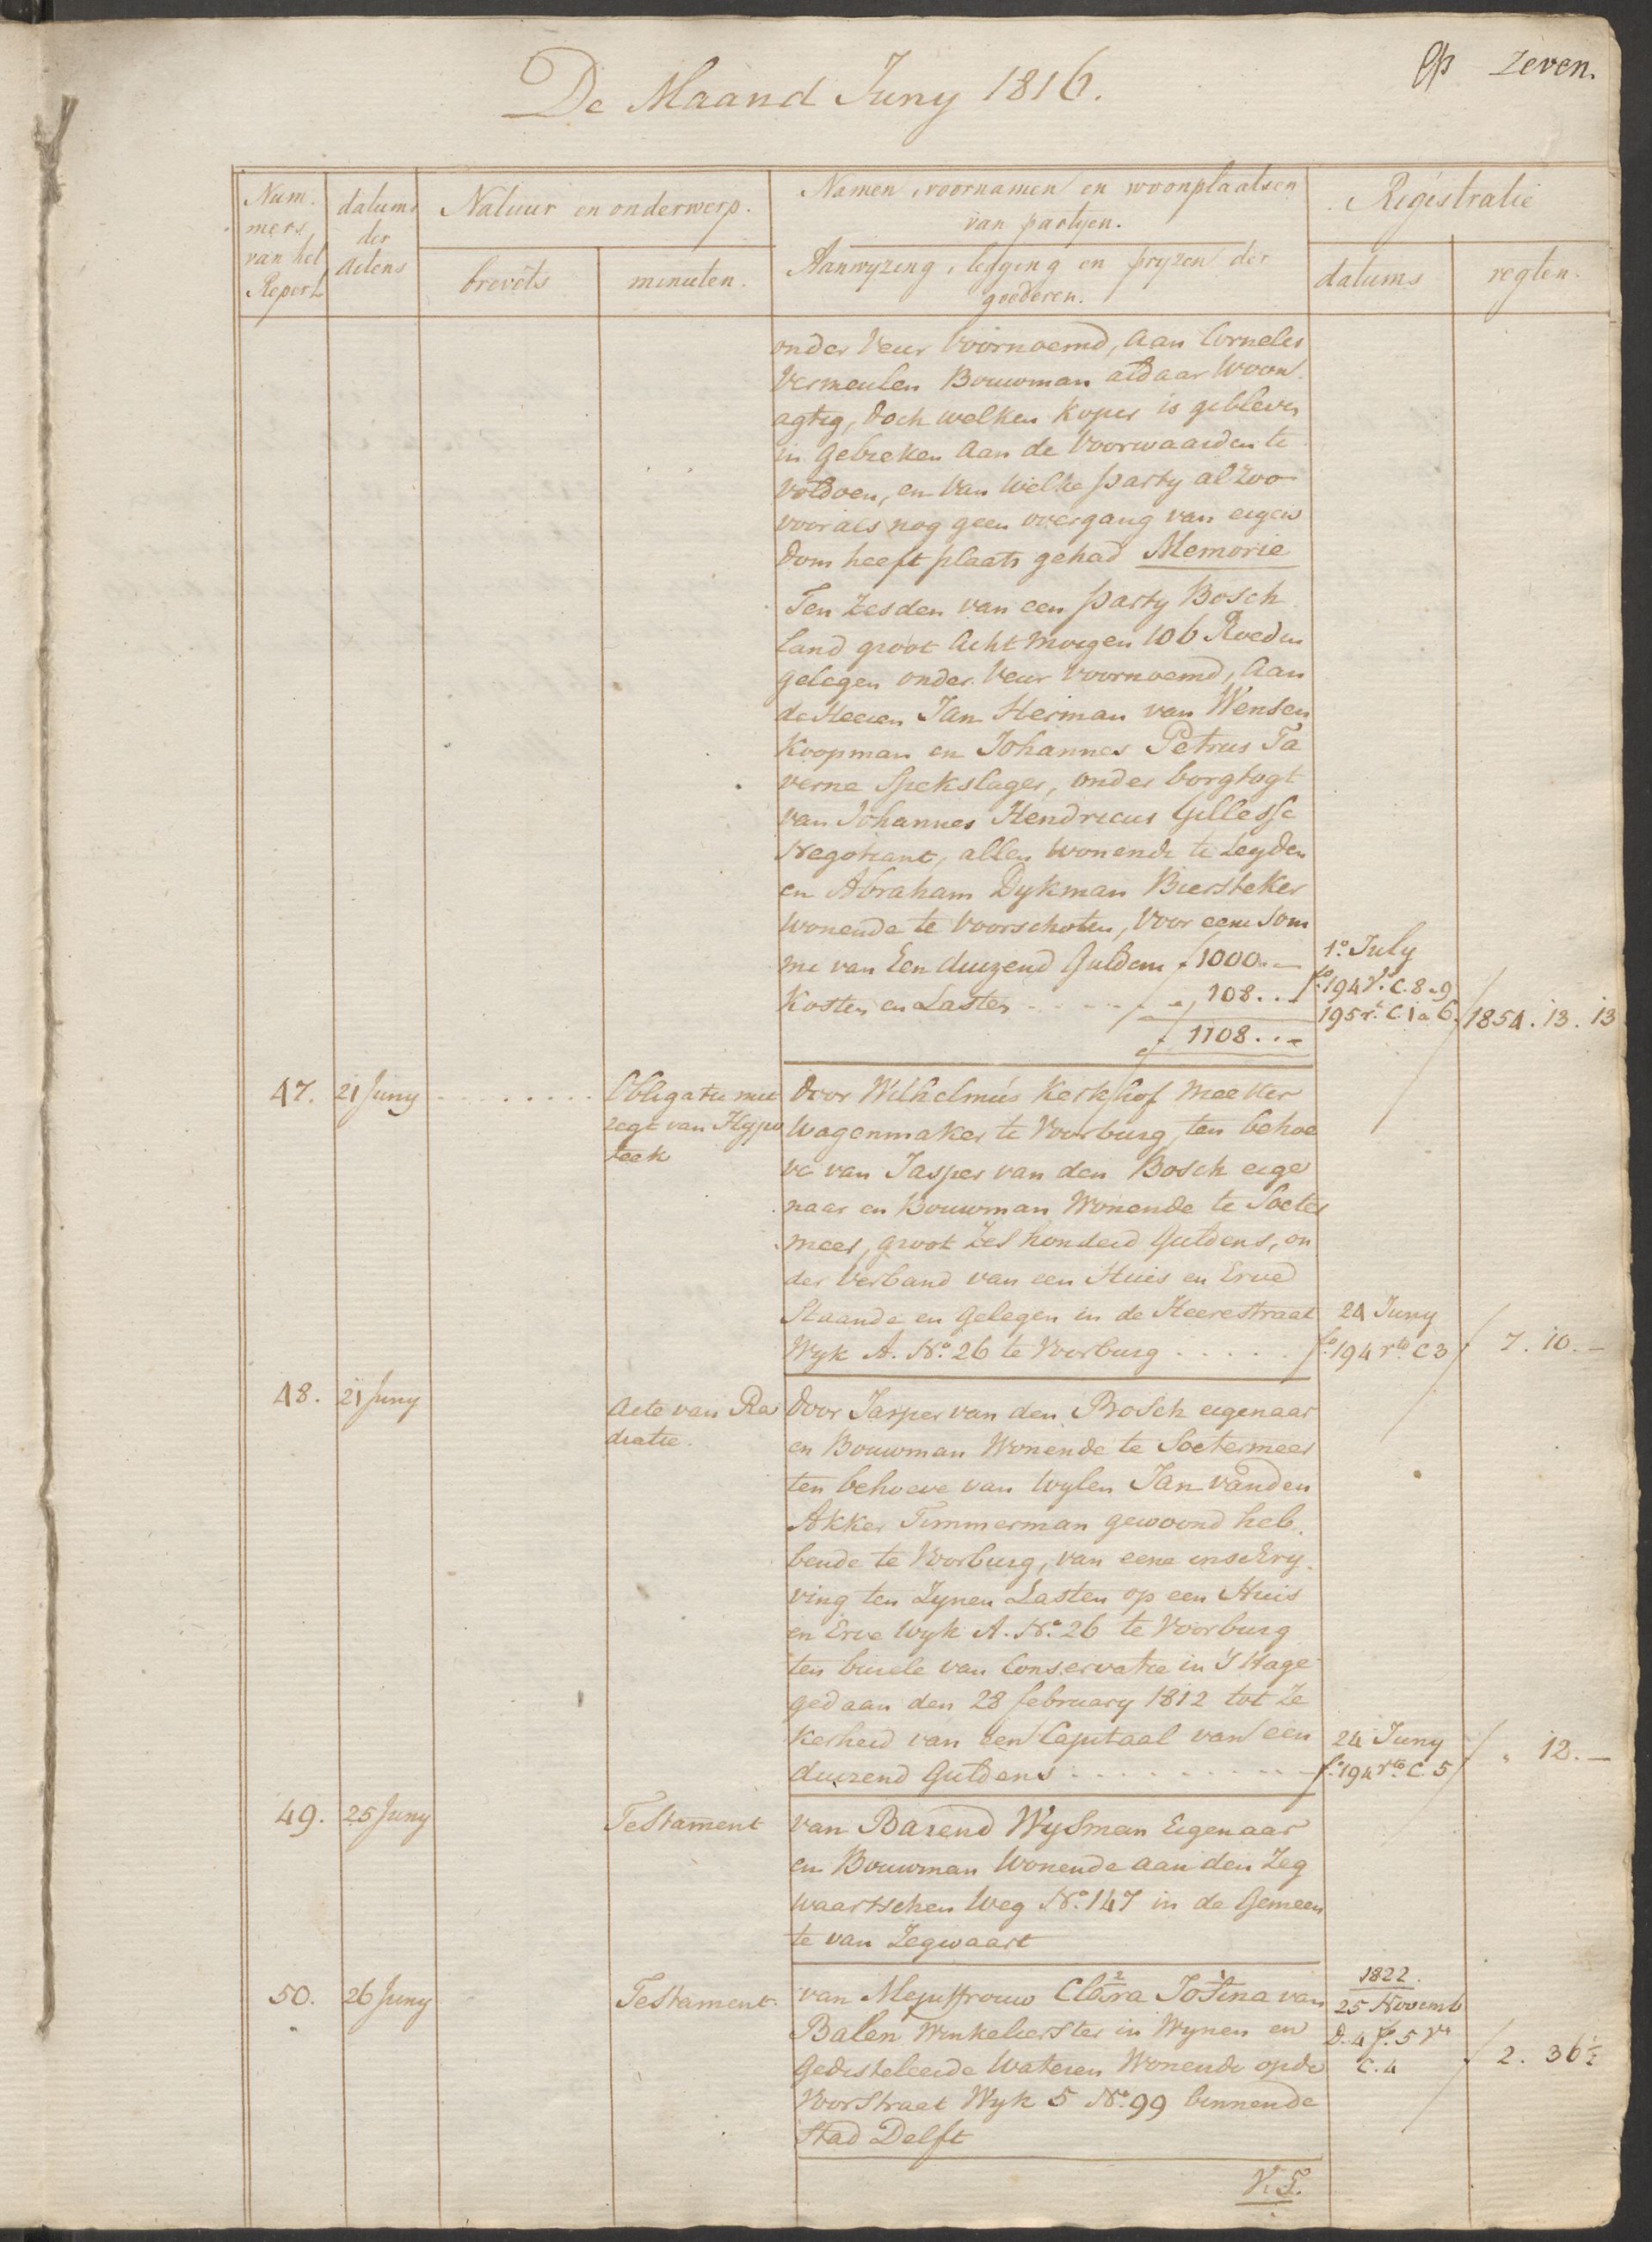 zeven.
De Maand Juny 1816.
Num.
mers
van het
Repert
datums
der
actens
Natuur en onderwerp.
brevets
minuten.
Namen, voornamen en woonplaatsen
van partyen.
Aanwyzing, legging en pryzen der
goederen.
Registratie
datums
regten.
onder Veur voornoemd, aan Cornelis
Vermeulen Bouwman aldaar Woon
agtig, doch welken koper is gebleven
in gebreken aan de Voorwaarden te
voldoen, en van welke party alzoo
voor als nog geen overgang van eigen
dom heeft plaats gehad Memorie
Ten Zesden van een party Bosch
land groot acht morgen 106 Roeden
gelegen onder Veur voornoemd, aan
de Heeren Jan Herman van Wensen
Koopman en Johannes Petrus Ta
verne Spekslager, onder borgtogt
van Johannes Hendricus Gillesse
Negotiant, allen wonende te Leyden
en Abraham Dykman Biersteker
wonende te Voorschoten, voor eene Som
me van Een duizend Guldens f 1000.. —
Kosten en Lasten - - - - - „ 108...—
f 1108...—
1o. July
fo. 194 vo. C. 8. 9
195 r. C. 1 a 6.
f 1854. 13. 13
47. 21 Juny - - - - - - - -
Obligatie met
regt van Hypo
teek
door Wilhelmus Kerkhof Meeker
Wagenmaker te Voorburg, ten behoe
ve van Jasper van den Bosch eige
naar en Bouwman Wonende te Soeter
meer, groot Zes honderd Guldens, on
der Verband van een Huis en Erve
Staande en Gelegen in de Heerestraat
Wyk A. No. 26 te Voorburg . . . . .
24 Juny
fo. 194 rto. C 3
f 7. 10. —
48. 21 Juny
Acte van Ra
diatie.
door Jasper van den Bosch eigenaar
en Bouwman Wonende te Soetermeer
ten behoeve van Wylen Jan van den
Akker Timmerman gewoond heb
bende te Voorburg, van eene inschry
ving ten Zynen Lasten op een Huis
en Erve Wyk A. No. 26 te Voorburg
ten burele van Conservatie in 's Hage
gedaan den 28 february 1812 tot Ze
kerheid van een Capitaal van een
duizend Guldens . . . . . . . . .
24 Juny
fo. 194 rto. C. 5
f „ 12. —
49. 25 Juny
Testament
van Barend Wysman Eigenaar
en Bouwman Wonende aan den Zeg
waartschen Weg No. 147 in de Gemeen
te van Zegwaart
50. 26 Juny
Testament.
van Mejuffrouw Clara Jotina van
Balen Winkelierster in Wynen en
Gedisteleerde Wateren Wonende op de
Voorstraat Wyk 5 No. 99 binnen de
Stad Delft
1822.
25 Novemb
D. 4 fo. 5 Vo
C. 4
f 2. 36½
V. T.